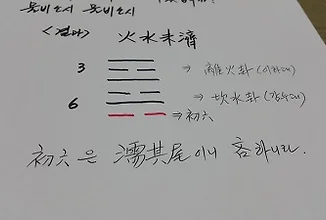 <결과> 火水未濟
3 ⇒ 離火卦 (이화괘)
6 ⇒ 坎水卦 (감수괘)
⇒ 初六
初六은 濡其尾이니 吝하니라.